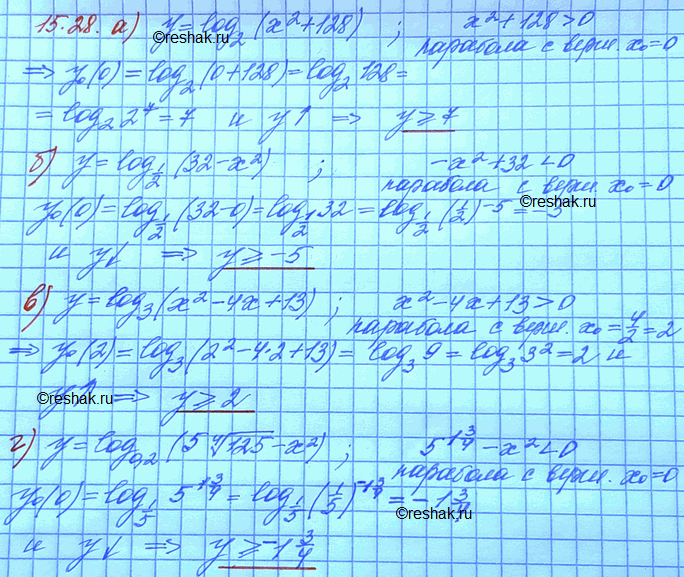 15.28. а) y = log₂ (x² + 128) ; x² + 128 > 0
парабола с верш. x₀ = 0
⇒ y₀(0) = log₂ (0 + 128) = log₂ 128 =
= log₂ 2⁷ = 7 и y↑ ⇒ y ⩾ 7
б) y = log_{1/2} (32 - x²) ; -x² + 32 < 0
парабола с верш. x₀ = 0
y₀(0) = log_{1/2} (32 - 0) = log_{1/2} 32 = log_{1/2} (1/2)⁻⁵ = -5
и y↓ ⇒ y ⩾ -5
в) y = log₃ (x² - 4x + 13) ; x² - 4x + 13 > 0
парабола с верш. x₀ = 4/2 = 2
⇒ y₀(2) = log₃ (2² - 4·2 + 13) = log₃ 9 = log₃ 3² = 2 и
y↑ ⇒ y ⩾ 2
г) y = log_{0,2} (5 ⁴√125 - x²) ; 5^{1 3/4} - x² < 0
парабола с верш. x₀ = 0
y₀(0) = log_{1/5} 5^{1 3/4} = log_{1/5} (1/5)^{-1 3/4} = -1 3/4
и y↓ ⇒ y ⩾ -1 3/4
©reshak.ru
©reshak.ru
©reshak.ru
©reshak.ru